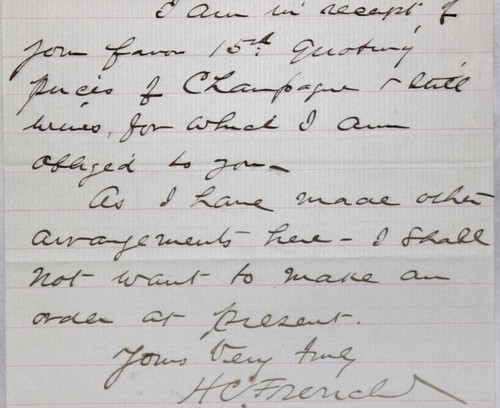 I am in recept of
your favor 15th. Quoting
prices of Champagne & still
wines, for which I am
obliged to you—
As I have made other
arrangements here – I shall
not want to make an
order at present.
Yours Very truly
H C. French